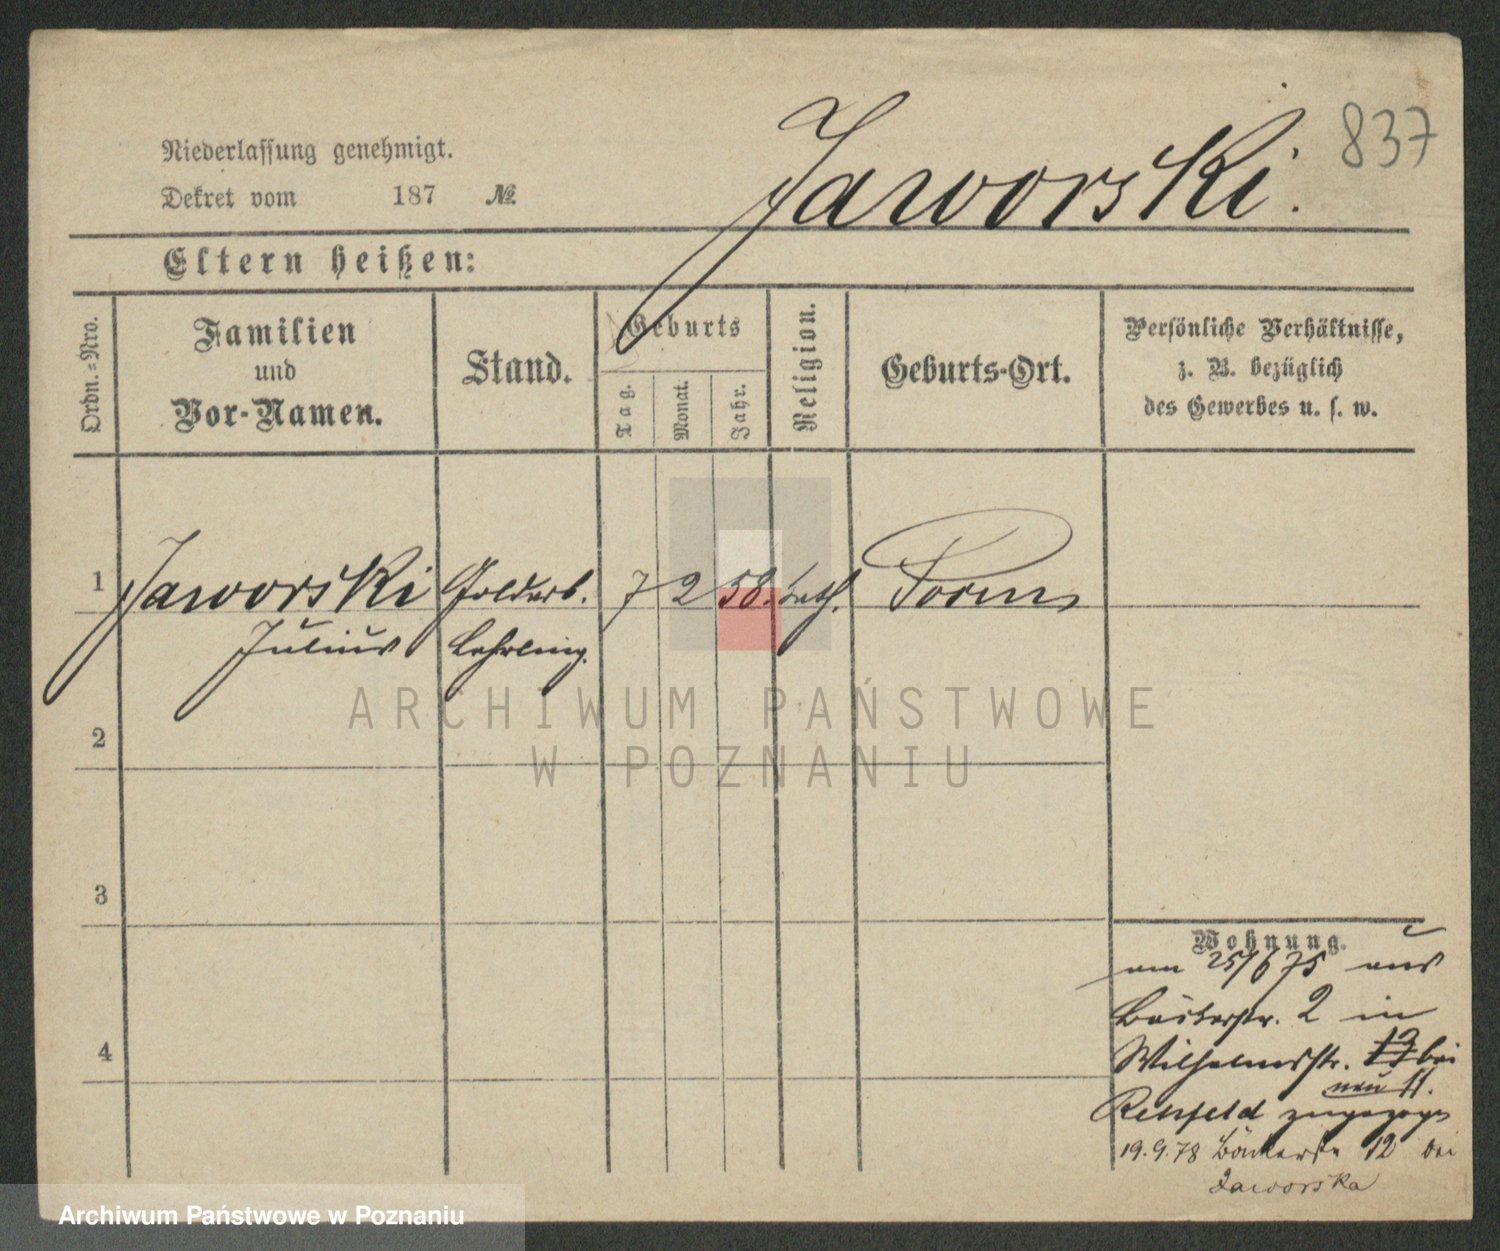 837
Jaworski.
Niederlassung genehmigt.
Dekret vom 187 №
Eltern heißen:
Ordn.=Nro.
Familien
und
Vor-Namen.
Stand.
Geburts
Tag.
Monat.
Jahr.
Religion.
Geburts-Ort.
Persönliche Verhältnisse,
z. B. bezüglich
des Gewerbes u. s. w.
1 Jaworski Goldarb. 7 2 58. kath. Posen
Julius Lehrling.
2
3
4
Wohnung.
am 25/6 75 aus
Bäckerstr. 2 in
Wilhelmsstr. 13 bei
neu 11.
Rehfeld zugezogen
19.9.78 Bäckerstr 12 bei
Jaworska
ARCHIWUM PAŃSTWOWE
W POZNANIU
Archiwum Państwowe w Poznaniu